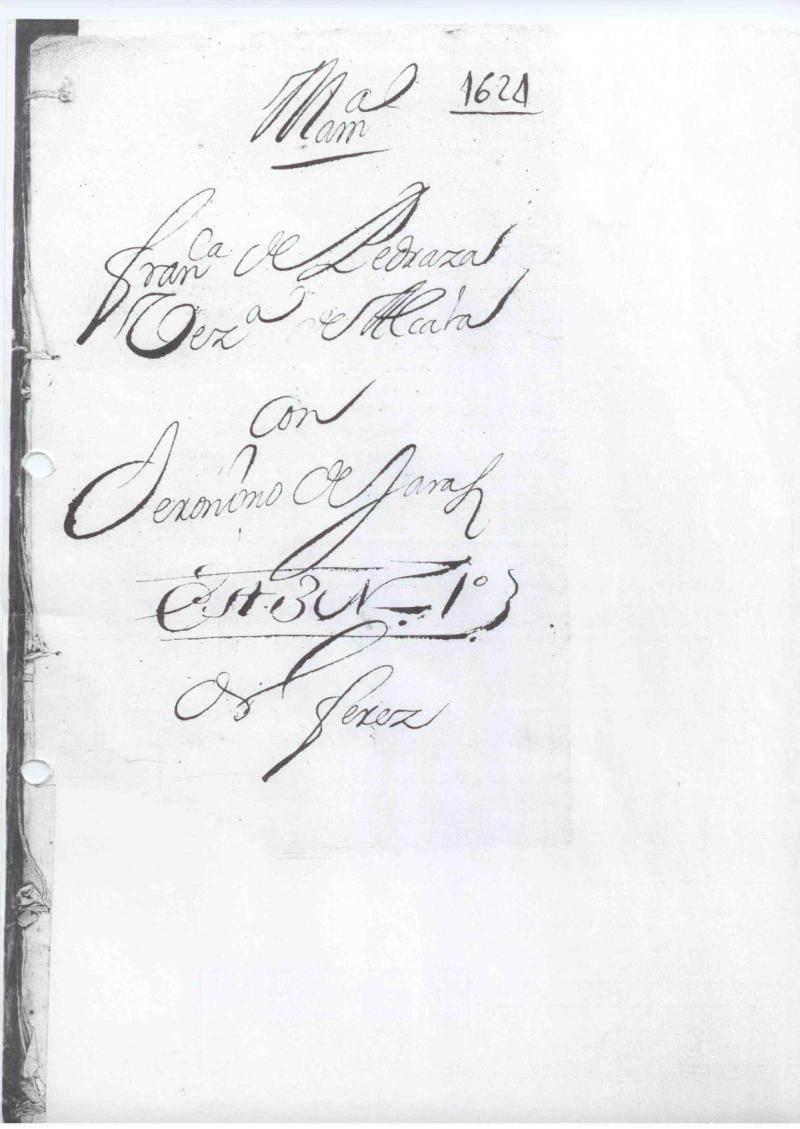 Mam.al 1621
Fran.ca de Pedraza
Vez.a de Alcala
con
Jeronimo de Jara
N 1º
de Perez